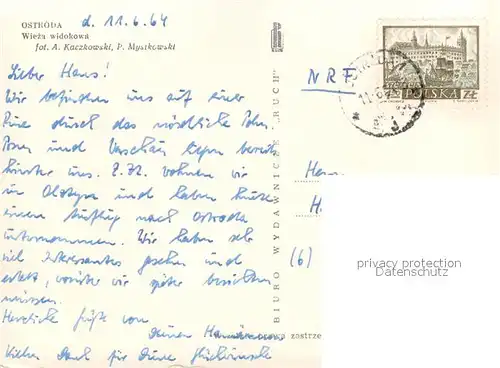 OSTRÓDA
d. 11.6.64
Wieża widokowa
fot. A. Kaczkowski, P. Mystkowski
Lieber Hans!
Wir befinden uns auf einer
durch das nördliche Polen.
Posen und Warschau liegen bereits
hinter uns. Z.Zt. wohnen wir
in Olsztyn und haben heute
einen Ausflug nach Ostroda
unternommen. Wir haben sehr
viel Interessantes gesehen und
erlebt, worüber wir später berichten
müssen.
Herzliche Grüße von
Deinen
Vielen Dank für Deine Glückwünsche
BIURO WYDAWNICZE „RUCH"
zastrze
N R F
POLSKA
ZŁ
Herrn
H
(6)
privacy protection
Datenschutz